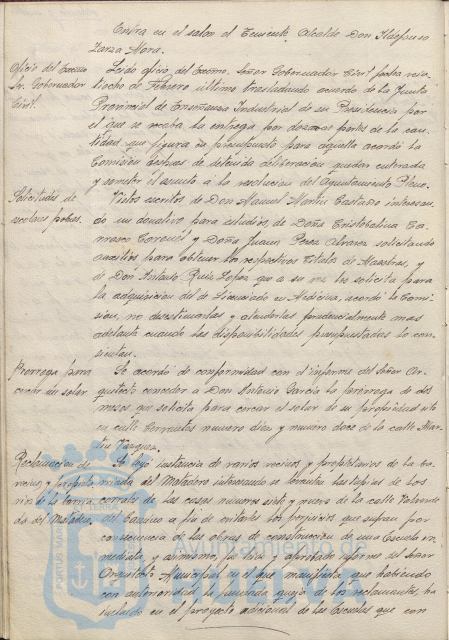 Entra en el salon el Teniente Alcalde Don Ildefonso
Zarza Mora.
Oficio del Excmo
Sr. Gobernador
Civil.
Leido oficio del Excmo. Señor Gobernador Civil fecha vein-
tiocho de Febrero último trasladando acuerdo de la Junta
Provincial de Enseñanza Industrial de su Presidencia por
el que se recaba la entrega por dozavas partes de la can-
tidad que figura en presupuesto para aquella acordó la
Comisión despues de detenida deliberación quedar enterada
y someter el asunto a la resolución del Ayuntamiento Pleno.
Solicitudes de
escolares pobres.
Vistos escritos de Don Manuel Martin Castaño interesan-
do un donativo para estudios, de Doña Cristobalina Ca-
rrasco Coronel y Doña Juana Perez Alvarez solicitando
auxilios para obtener los respectivos titulos de Maestras, y
de Don Antonio Ruiz Lopez que a su vez lo solicita para
la adquisición del de Licenciado en Medicina, acordó la Comi-
sion, no desestimarlas y atenderlas prudencialmente mas
adelante cuando las disponibilidades presupuestadas lo con-
sientan.
Prorroga para
cercar un solar
Se acordó de conformidad con el informe del Señor Ar-
quitecto conceder a Don Antonio Garcia la prorroga de dos
meses que solicita para cercar el solar de su propiedad sito
en calle Cervantes numero diez y numero doce de la calle Mar-
tin Vazquez.
Reclamacion de
vecinos y propieta-
rios de la barria-
da del Matadero.
Se leyó instancia de varios vecinos y propietarios de la ba-
rriada del Matadero interesando se levanten las tapias de los
corrales de las casas numeros siete y nueve de la calle
del Camino a fin de evitarles los perjuicios que sufren por
consecuencia de las obras de construccion de una Escuela in-
mediata, y asimismo, se leyó y aprobado informe del Señor
Arquitecto Municipal en el que manifiesta que habiendo
con anterioridad la fundada queja de los reclamantes, ha
incluido en el proyecto adicional de las Escuelas que con